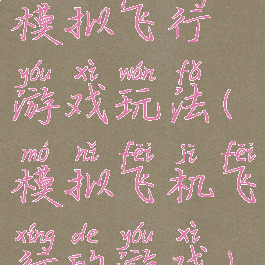 模拟飞行
yóu xì wán fǎ
游戏玩法(
mó nǐ fēi jī fēi
模拟飞机飞
xíng de yóu xì
行的游戏)